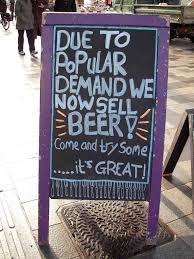 DUE TO
POPULAR
DEMAND WE
NOW SELL
BEER!
Come and try Some
.....it's GREAT!